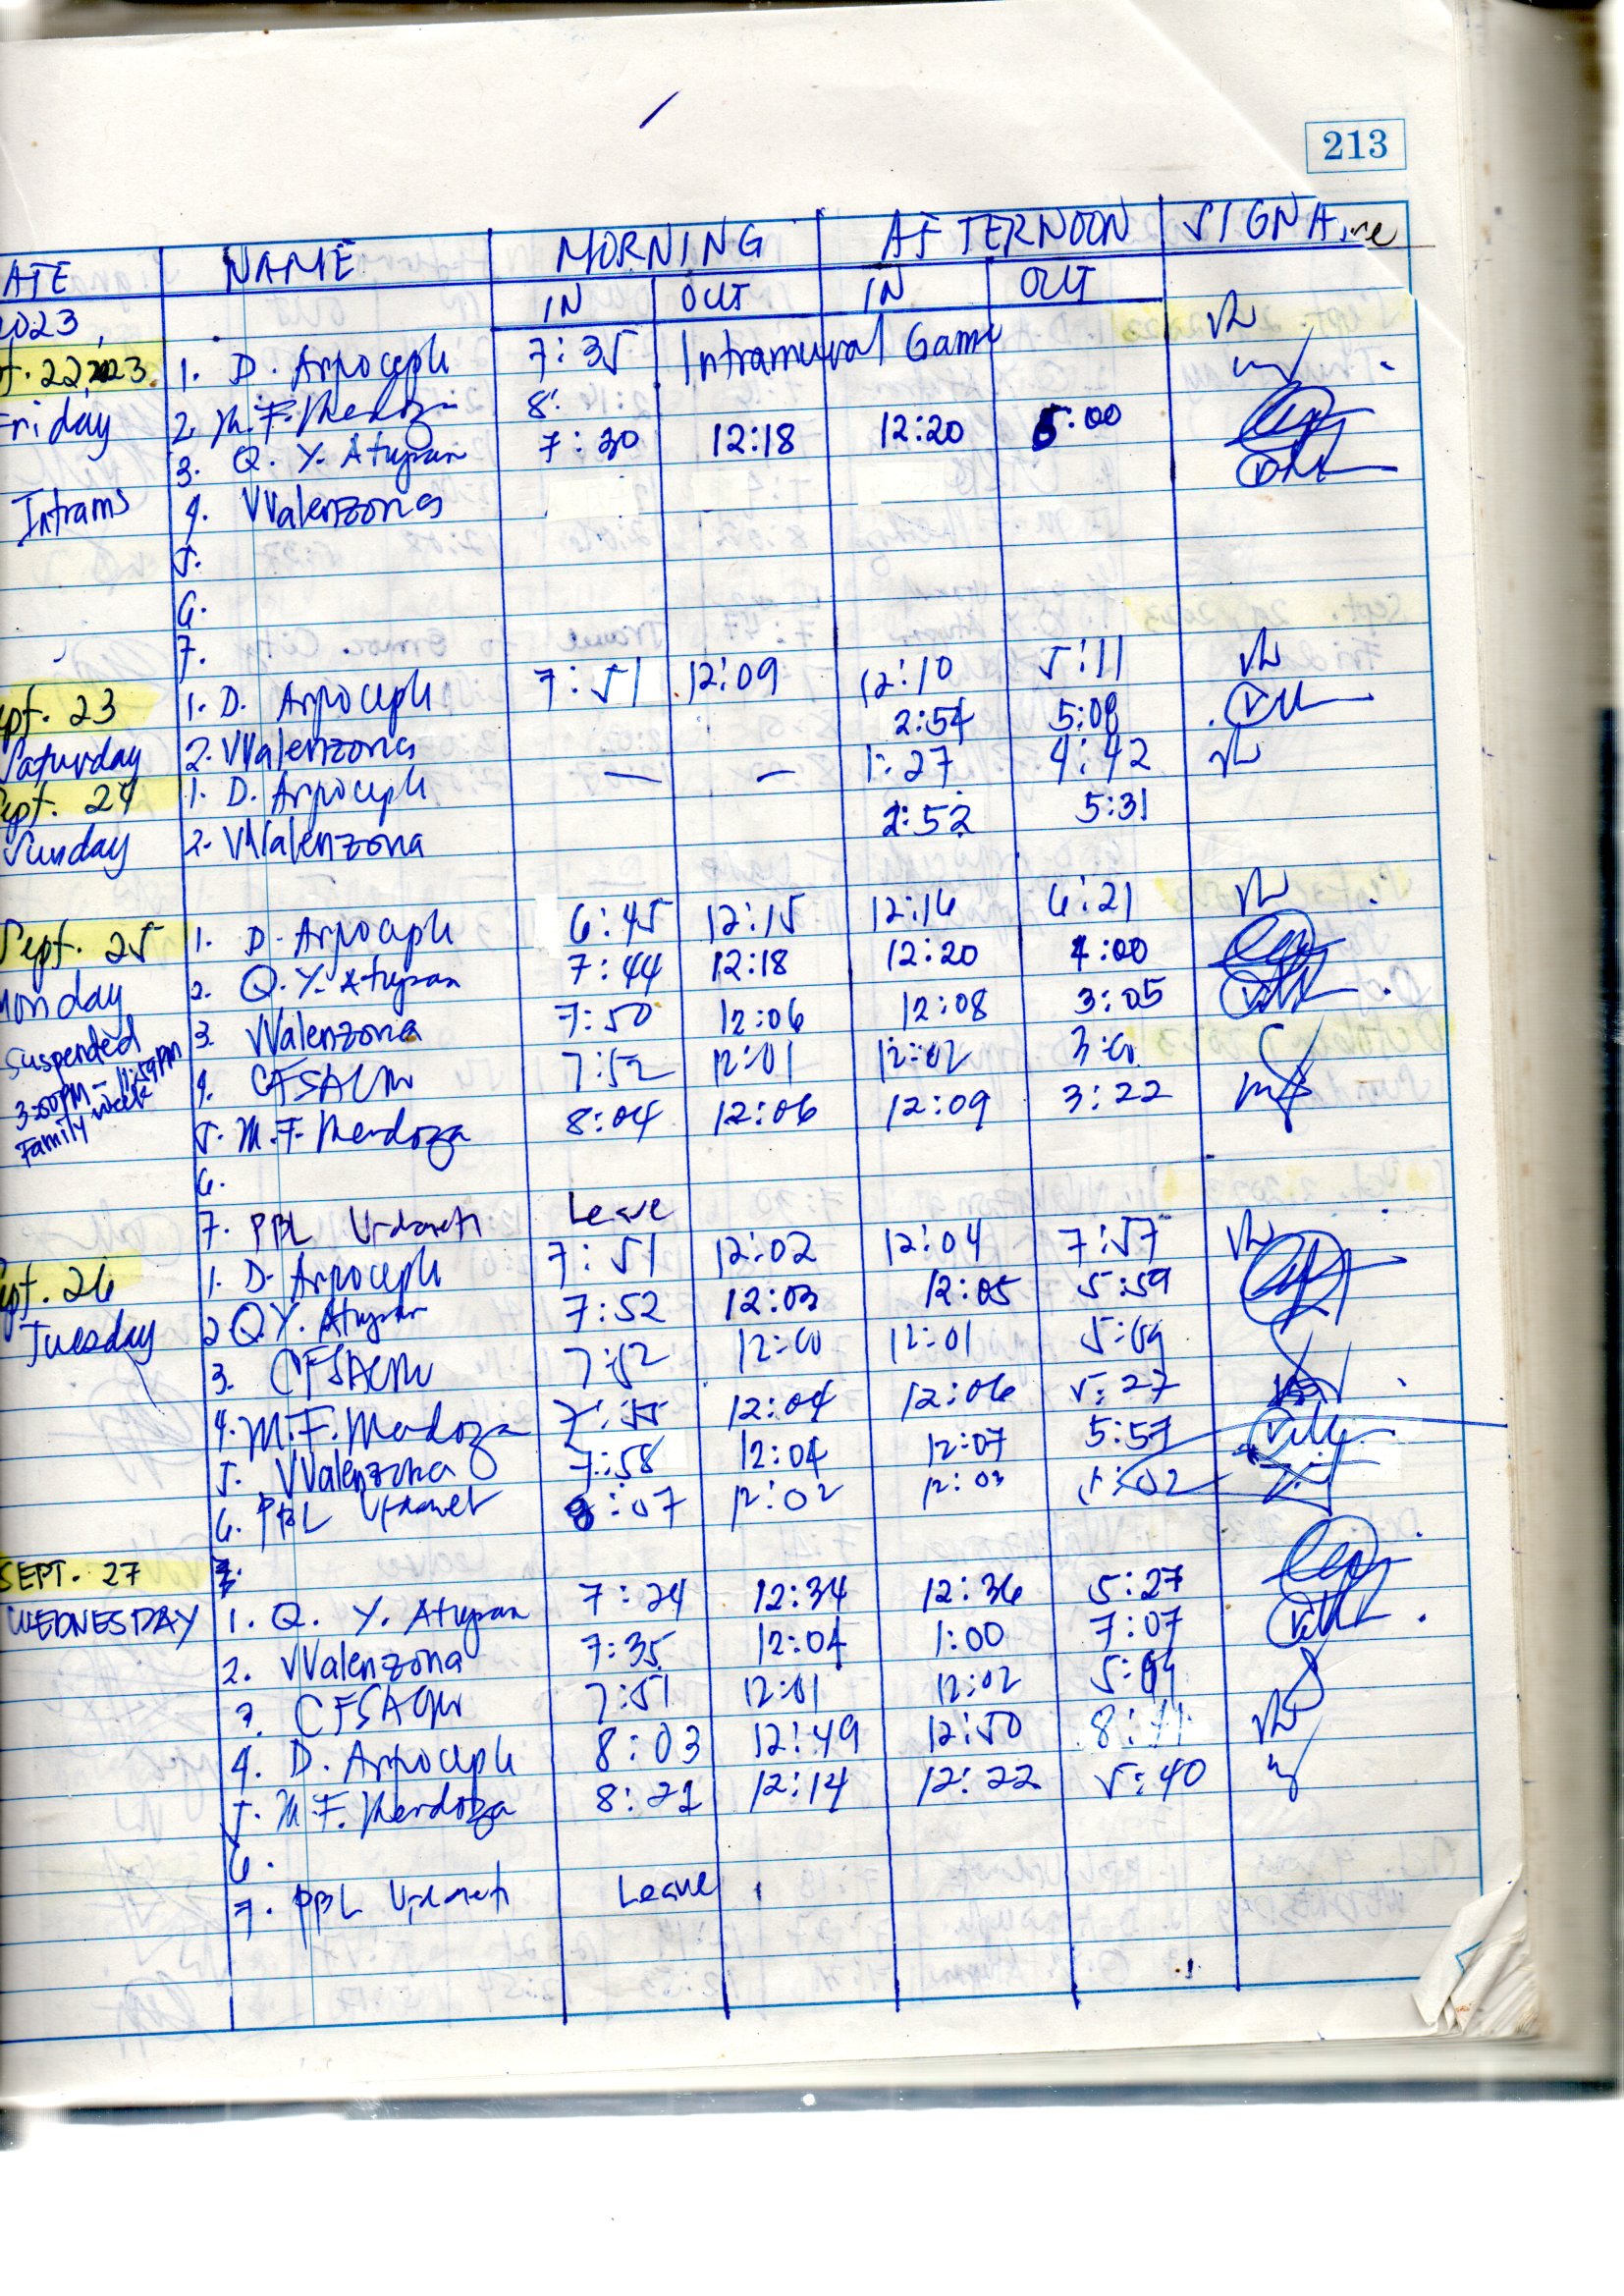 213
ATE NAME MORNING AFTERNOON SIGNA
IN OUT IN OUT
2023
t. 22, 2023 1. D. 7:35 Intramural Game
Friday 2. M. F. Mendoza 8:
3. Q. Y. Atupan 7:30 12:18 12:20 5:00
Intrams 4. VValenzona
5.
6.
7.
pt. 23 1. D. 7:51 12:09 12:10 5:11
Saturday 2. VValenzona 2:54 5:08
ept. 24 1. D. — — 1:27 4:42
Sunday 2. VValenzona 2:52 5:31
Sept. 25 1. D. 6:45 12:15 12:16 6:21
Monday 2. Q. Y. Atupan 7:44 12:18 12:20 4:00
suspended 3. VValenzona 7:50 12:06 12:08 3:05
3:00PM - 11:59PM 4. 7:52 12:01 12:02
Family week 5. M. F. Mendoza 8:04 12:06 12:09 3:22
6.
7. PBL Leave
pt. 26 1. D. 7:51 12:02 12:04 7:57
Tuesday 2 Q Y. Atupan 7:52 12:03 12:05 5:59
3. 7:52 12:00 12:01
4. M. F. Mendoza 7:55 12:04 12:06 5:27
5. VValenzona 7:58 12:04 12:07 5:57
6. PBL 8:07 12:02 12:03 5:02
SEPT. 27 7.
WEDNESDAY 1. Q. Y. Atupan 7:24 12:34 12:36 5:27
2. VValenzona 7:35 12:04 1:00 7:07
3. 7:51 12:01 12:02
4. D. 8:03 12:49 12:50
5. M. F. Mendoza 8:21 12:14 12:22 5:40
6.
7. PBL Leave